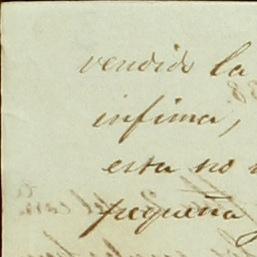 vendido la
infima,
esta no
pequeña